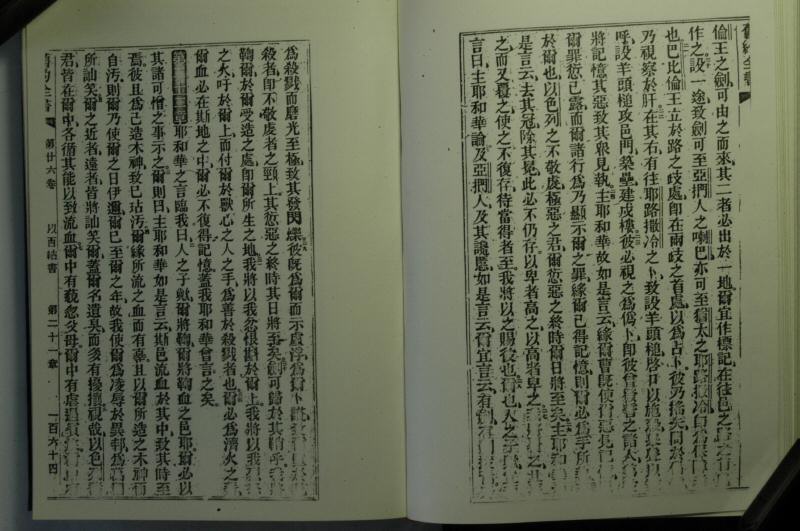 舊約全書
倫王之劍可由之而來其二者必出於一地爾宜作標記在往邑之
作之設一途致劍可至亞捫人之喇巴亦可至猶大之耶路撒冷
也巴比倫王立於路之歧處即在兩歧之首處以為占卜彼乃搖矢問於
乃視察於肝在其右有往耶路撒冷之卜致設羊頭槌啓口以施
呼設羊頭槌攻邑門築壘建戍樓彼必視之為偽卜即彼曾
將記憶其惡致其衆見執主耶和華故如是言云緣爾曹既使
爾罪愆已露而爾諸行為乃顯示爾之罪緣爾已得記憶則爾必為手所
於爾也以色列之不敬虔極惡之君爾愆惡之終時爾日將至矣主耶和華
是言云去其冠除其冕此必不仍存以卑者高之以高者卑之
之而又覆之使之不復存待當得者至我將以之賜彼也人之子
言曰主耶和華論及亞捫人及其讒慝如是言云爾宜言云有劍
為殺戮而磨光至極致其發閃爍彼既為爾而示虛浮為爾卜
殺者即不敬虔者之頸上其愆惡之終時其日將至矣劍可歸於其鞘乎
鞫爾於爾受造之處即爾所生之地我將以我忿恨斟於爾上我將以我
之火吁於爾上而付爾於獸心之人之手為善於殺戮者也爾必為濟火之
爾血必在斯地之中爾必不復得記憶蓋我耶和華曾言之矣
耶和華之言臨我曰人之子歟爾將鞫爾將鞫血之邑耶爾必以
其諸可憎之事示之爾則曰主耶和華如是言云斯邑流血於其中致其時至
焉彼且為己造木神致己玷汚爾緣所流之血而有辜且以爾所造之木神而
自汚則爾乃使爾之日伊邇爾已至爾之年故我使爾為凌辱於異邦為
所訕笑爾之近者遠者皆將訕笑爾蓋爾名遺臭而多有擾攘視哉以色列
君皆在爾中各循其能以致流血爾中有藐忽父母爾中有虐
舊約全書 第廿六卷 以西結書 第二十一章 一百六十四